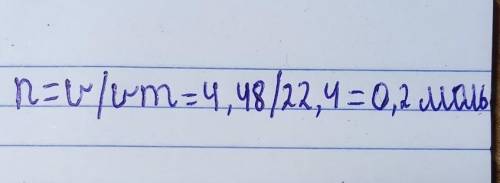 n=v/vm=4,48/22,4=0,2 моль